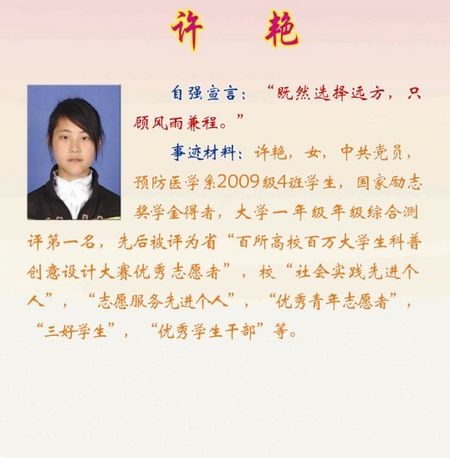 许 艳
自强宣言：“既然选择远方，只
顾风雨兼程。”
事迹材料：许艳，女，中共党员，
预防医学系2009级4班学生，国家励志
奖学金得者，大学一年级年级综合测
评第一名，先后被评为省“百所高校百万大学生科普
创意设计大赛优秀志愿者”，校“社会实践先进个
人”，“志愿服务先进个人”，“优秀青年志愿者”，
“三好学生”，“优秀学生干部”等。